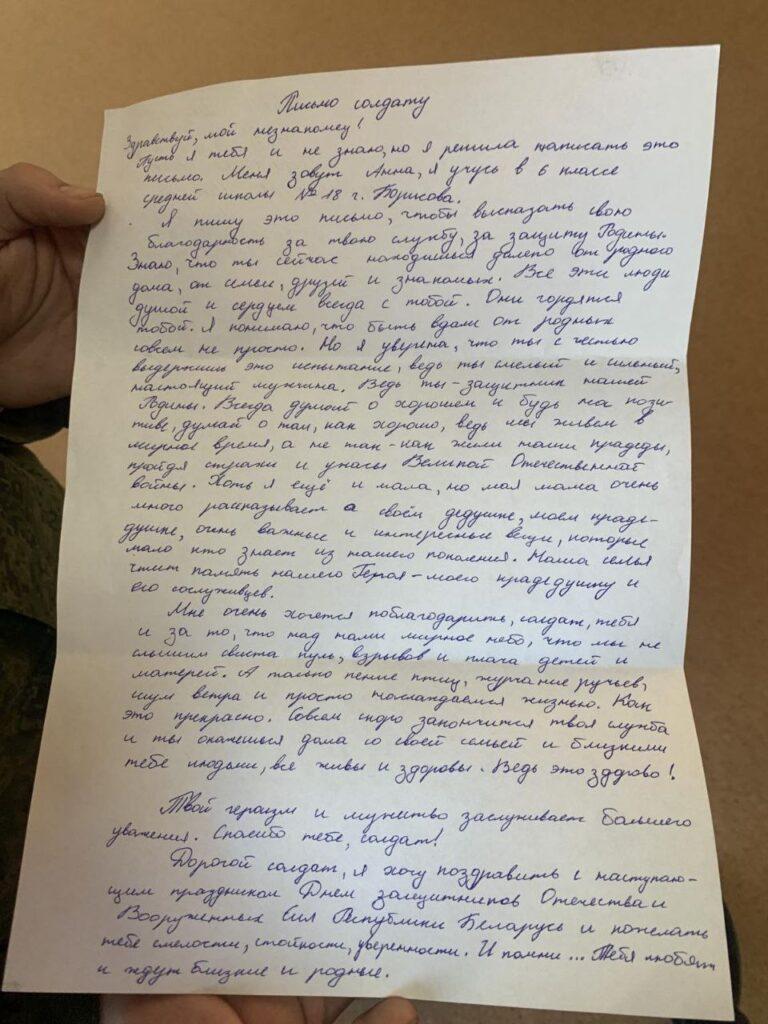 Письмо солдату
Здравствуй, мой незнакомец!
Пусть я тебя и не знаю, но я решила написать это
письмо. Меня зовут Анна, я учусь в 6 классе
средней школы № 18 г. Борисова.
Я пишу это письмо, чтобы высказать свою
благодарность за твою службу, за защиту Родины.
Знаю, что ты сейчас находишься далеко от родного
дома, от семьи, друзей и знакомых. Все эти люди
душой и сердцем всегда с тобой. Они гордятся
тобой. Я понимаю, что быть вдали от родных
совсем не просто. Но я уверена, что ты с честью
выдержишь это испытание, ведь ты смелый и сильный,
настоящий мужчина. Ведь ты - защитник нашей
Родины. Всегда думай о хорошем и будь на пози-
тиве, думай о том, как хорошо, ведь мы живём в
мирное время, а не так - как жили наши прадеды,
пройдя страхи и ужасы Великой Отечественной
войны. Хоть я ещё и мала, но моя мама очень
много рассказывает о своём дедушке, моём праде-
душке, очень важные и интересные вещи, которые
мало кто знает из нашего поколения. Наша семья
чтит память нашего Героя - моего прадедушку и
его сослуживцев.
Мне очень хочется поблагодарить, солдат, тебя
и за то, что над нами мирное небо, что мы не
слышим свиста пуль, взрывов и плача детей и
матерей. А только пение птиц, журчание ручьев,
шум ветра и просто наслаждаемся жизнью. Как
это прекрасно. Совсем скоро закончится твоя служба
и ты окажешься дома со своей семьей и близкими
тебе людьми, все живы и здоровы. Ведь это здорово!
Твой героизм и мужество заслуживает большего
уважения. Спасибо тебе, солдат!
Дорогой солдат, я хочу поздравить с наступаю-
щим праздником Днем защитников Отечества и
Вооруженных Сил Республики Беларусь и пожелать
тебе смелости, стойкости, уверенности. И помни... Тебя любят
и ждут близкие и родные.